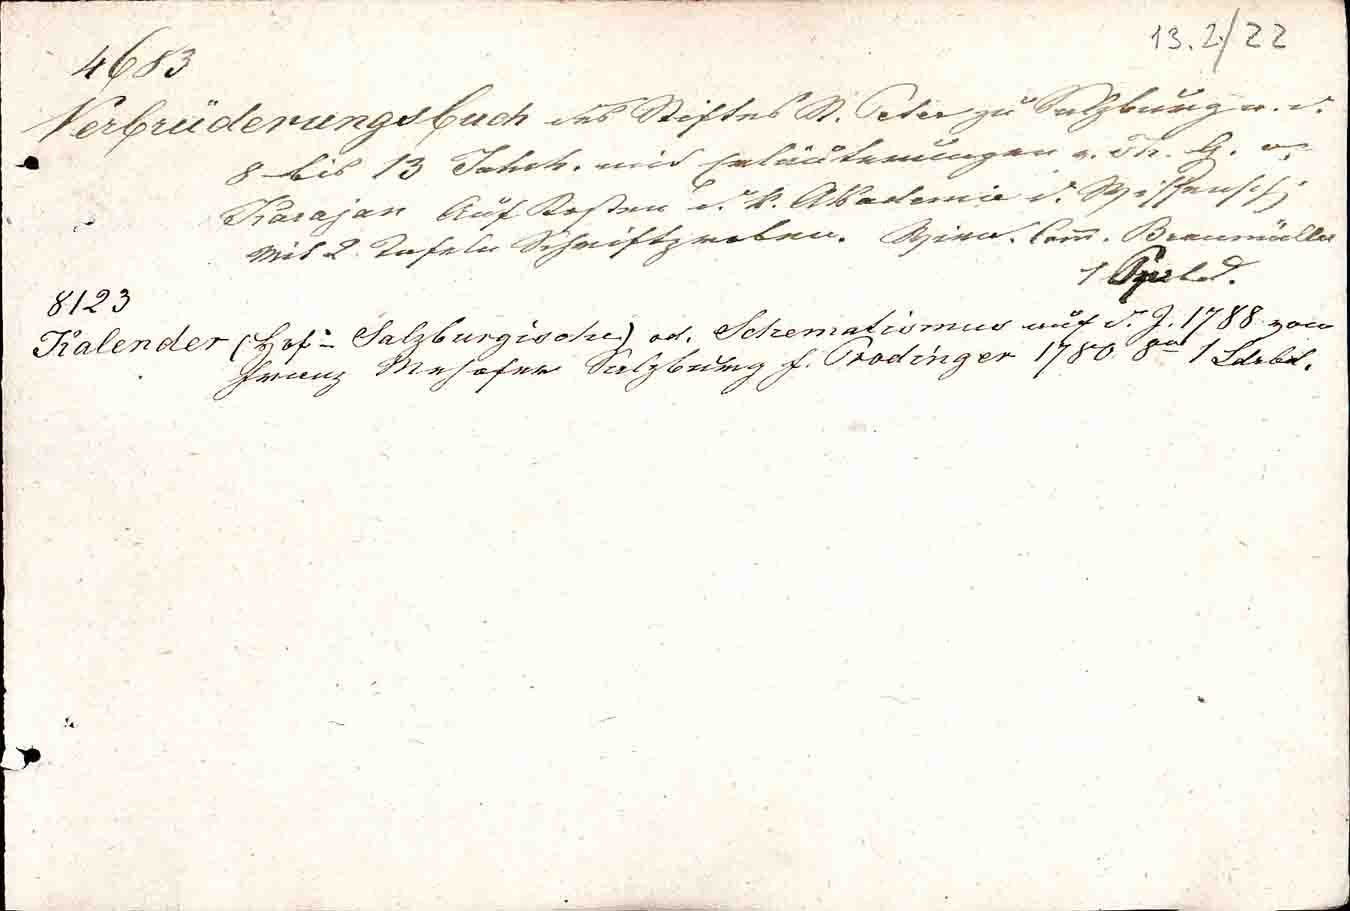 13.2/22
4683
Verbrüderungsbuch des Stiftes St. Peter zu Salzburg a. d.
8 bis 13 Jahrh. mit Erläuterungen v. Th. G. v.
Karajan Auf Kosten d. k. Akademie d. Wissensch.
Mit 2 Tafeln Schriftproben. Wien. Com. Braumüller
1
8123
Kalender (Hof- Salzburgische) od. Schematismus auf d. J. 1788 von
Franz Salzburg f. Prodinger 1780 8vo 1 Ldrbd.